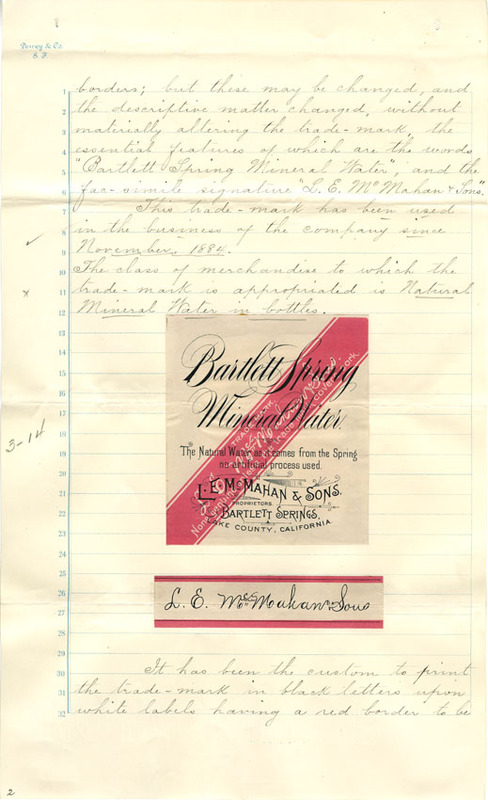 Dewey & Co.
S. F.
1 borders; but these may be changed, and
2 the descriptive matter changed, without
3 materially altering the trade-mark, the
4 essential features of which are the words
5 "Bartlett Spring Mineral Water", and the
6 fac-simile signature "L. E. McMahan & Sons".
7 This trade-mark has been used
8 in the business of the company since
9 November, 1884.
10 The class of merchandise to which the
11 trade-mark is appropriated is Natural
12 Mineral Water in bottles.
13
14
15
16
17
18
19
20
21
22
23
24
25
26
27
28
29
3-14
Bartlett Spring
Mineral Water.
TRADE MARK
L. E. McMahan & Sons.
The Natural Water as it comes from the Spring
no artificial process used.
L. E. McMAHAN & SONS.
PROPRIETORS.
BARTLETT SPRINGS,
LAKE COUNTY, CALIFORNIA.
L. E. McMahan & Sons
30 It has been the custom to print
31 the trade-mark in black letters upon
32 white labels having a red border to be
2